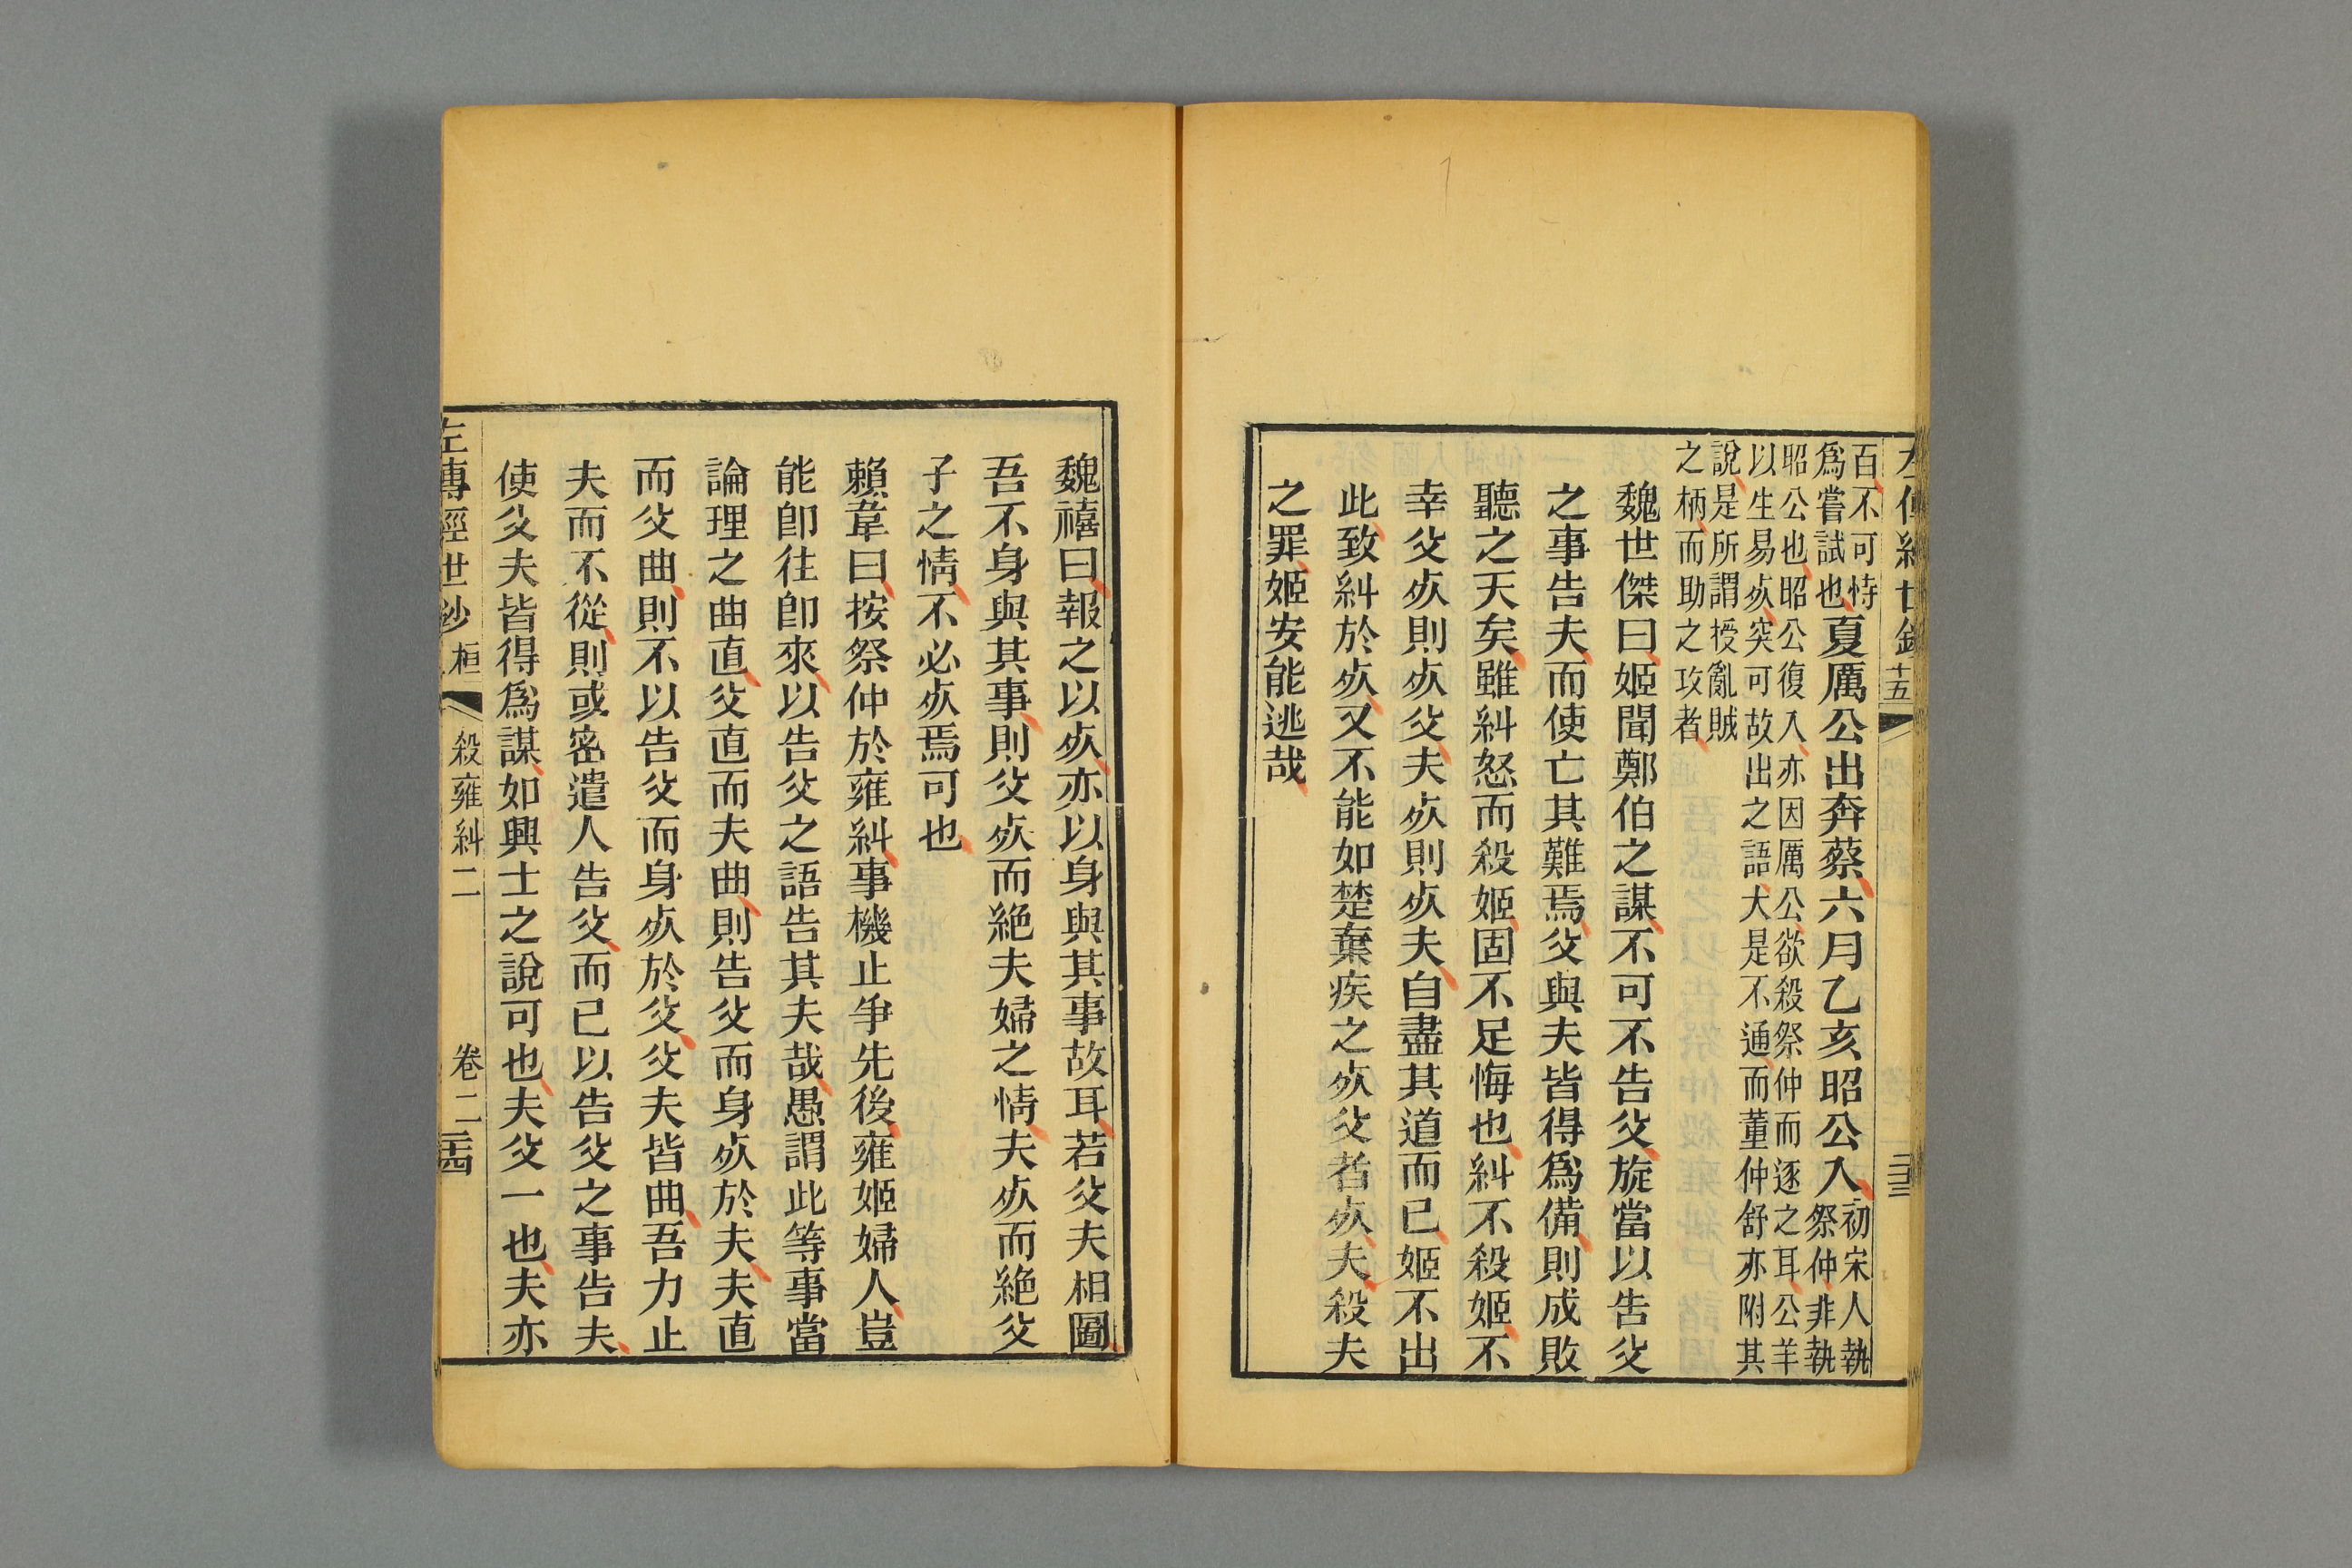 左傳經世鈔 十五
百不可恃
爲嘗試也
夏厲公出奔蔡六月乙亥昭公入
初宋人執
祭仲非執
昭公也昭公復入亦因厲公欲殺祭仲而逐之耳公羊
以生易死突可故出之語大是不通而董仲舒亦附其
說是所謂授亂賊
之柄而助之攻者
魏世傑曰姬聞鄭伯之謀不可不告父旋當以告父
之事告夫而使亡其難焉父與夫皆得爲備則成敗
聽之天矣雖糾怒而殺姬固不足悔也糾不殺姬不
幸父死則死父夫死則死夫自盡其道而已姬不出
此致糾於死又不能如楚棄疾之死父者死夫殺夫
之罪姬安能逃哉
魏禧曰報之以死亦以身與其事故耳若父夫相圖
吾不身與其事則父死而絶夫婦之情夫死而絶父
子之情不必死焉可也
賴韋曰按祭仲於雍糾事機止爭先後雍姬婦人豈
能卽往卽來以告父之語告其夫哉愚謂此等事當
論理之曲直父直而夫曲則告父而身死於夫夫直
而父曲則不以告父而身死於父父夫皆曲吾力止
夫而不從則或密遣人告父而已以告父之事告夫
使父夫皆得爲謀如興士之說可也夫父一也夫亦
左傳經世鈔 桓 殺雍糾二 卷二 二十四